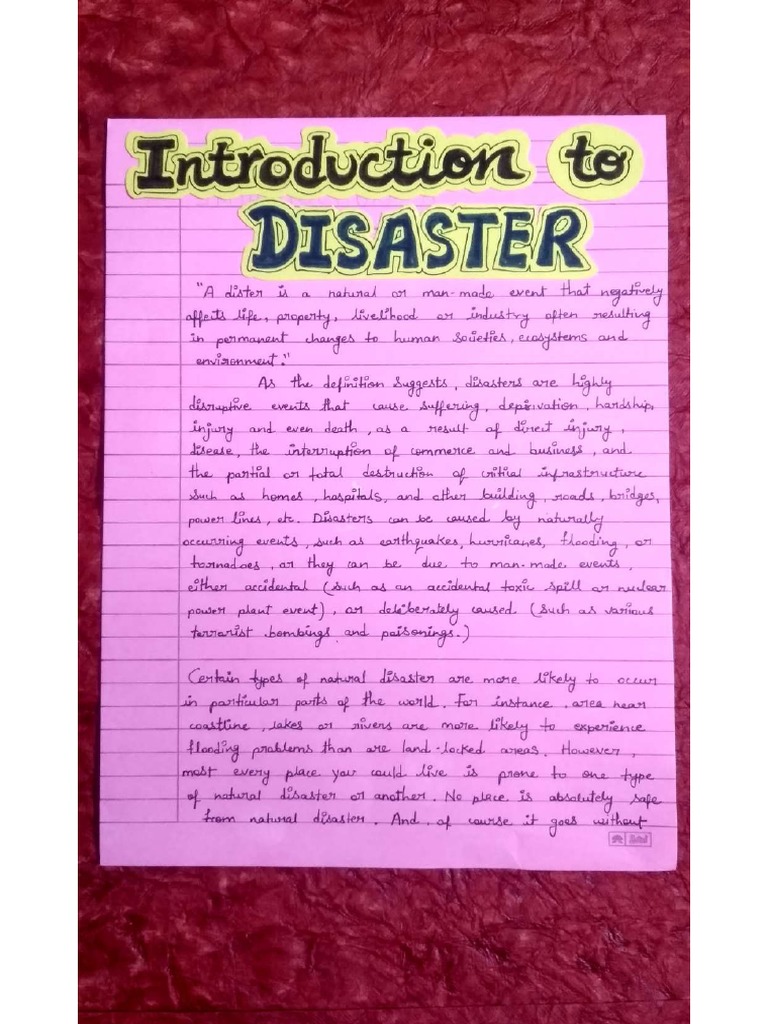 Introduction to
DISASTER
"A dister is a natural or man-made event that negatively
affects life, property, livelihood or industry often resulting
in permanent changes to human societies, ecosystems and
environment."
As the definition suggests, disasters are highly
disruptive events that cause suffering, deprivation, hardship,
injury and even death, as a result of direct injury,
disease, the interruption of commerce and business, and
the partial or total destruction of critical infrastructure
such as homes, hospitals, and other building, roads, bridges,
power lines, etc. Disasters can be caused by naturally
occurring events, such as earthquakes, hurricanes, flooding, or
tornadoes, or they can be due to man-made events,
either accidental (such as an accidental toxic spill or nuclear
power plant event), or deliberately caused (such as various
terrarist bombings and poisonings.)
Certain types of natural disaster are more likely to occur
in particular parts of the world. For instance, area near
coastline, lakes or rivers are more likely to experience
flooding problems than are land-locked areas. However,
most every place you could live is prone to one type
of natural disaster or another. No place is absolutely safe
from natural disaster. And, of course it goes without